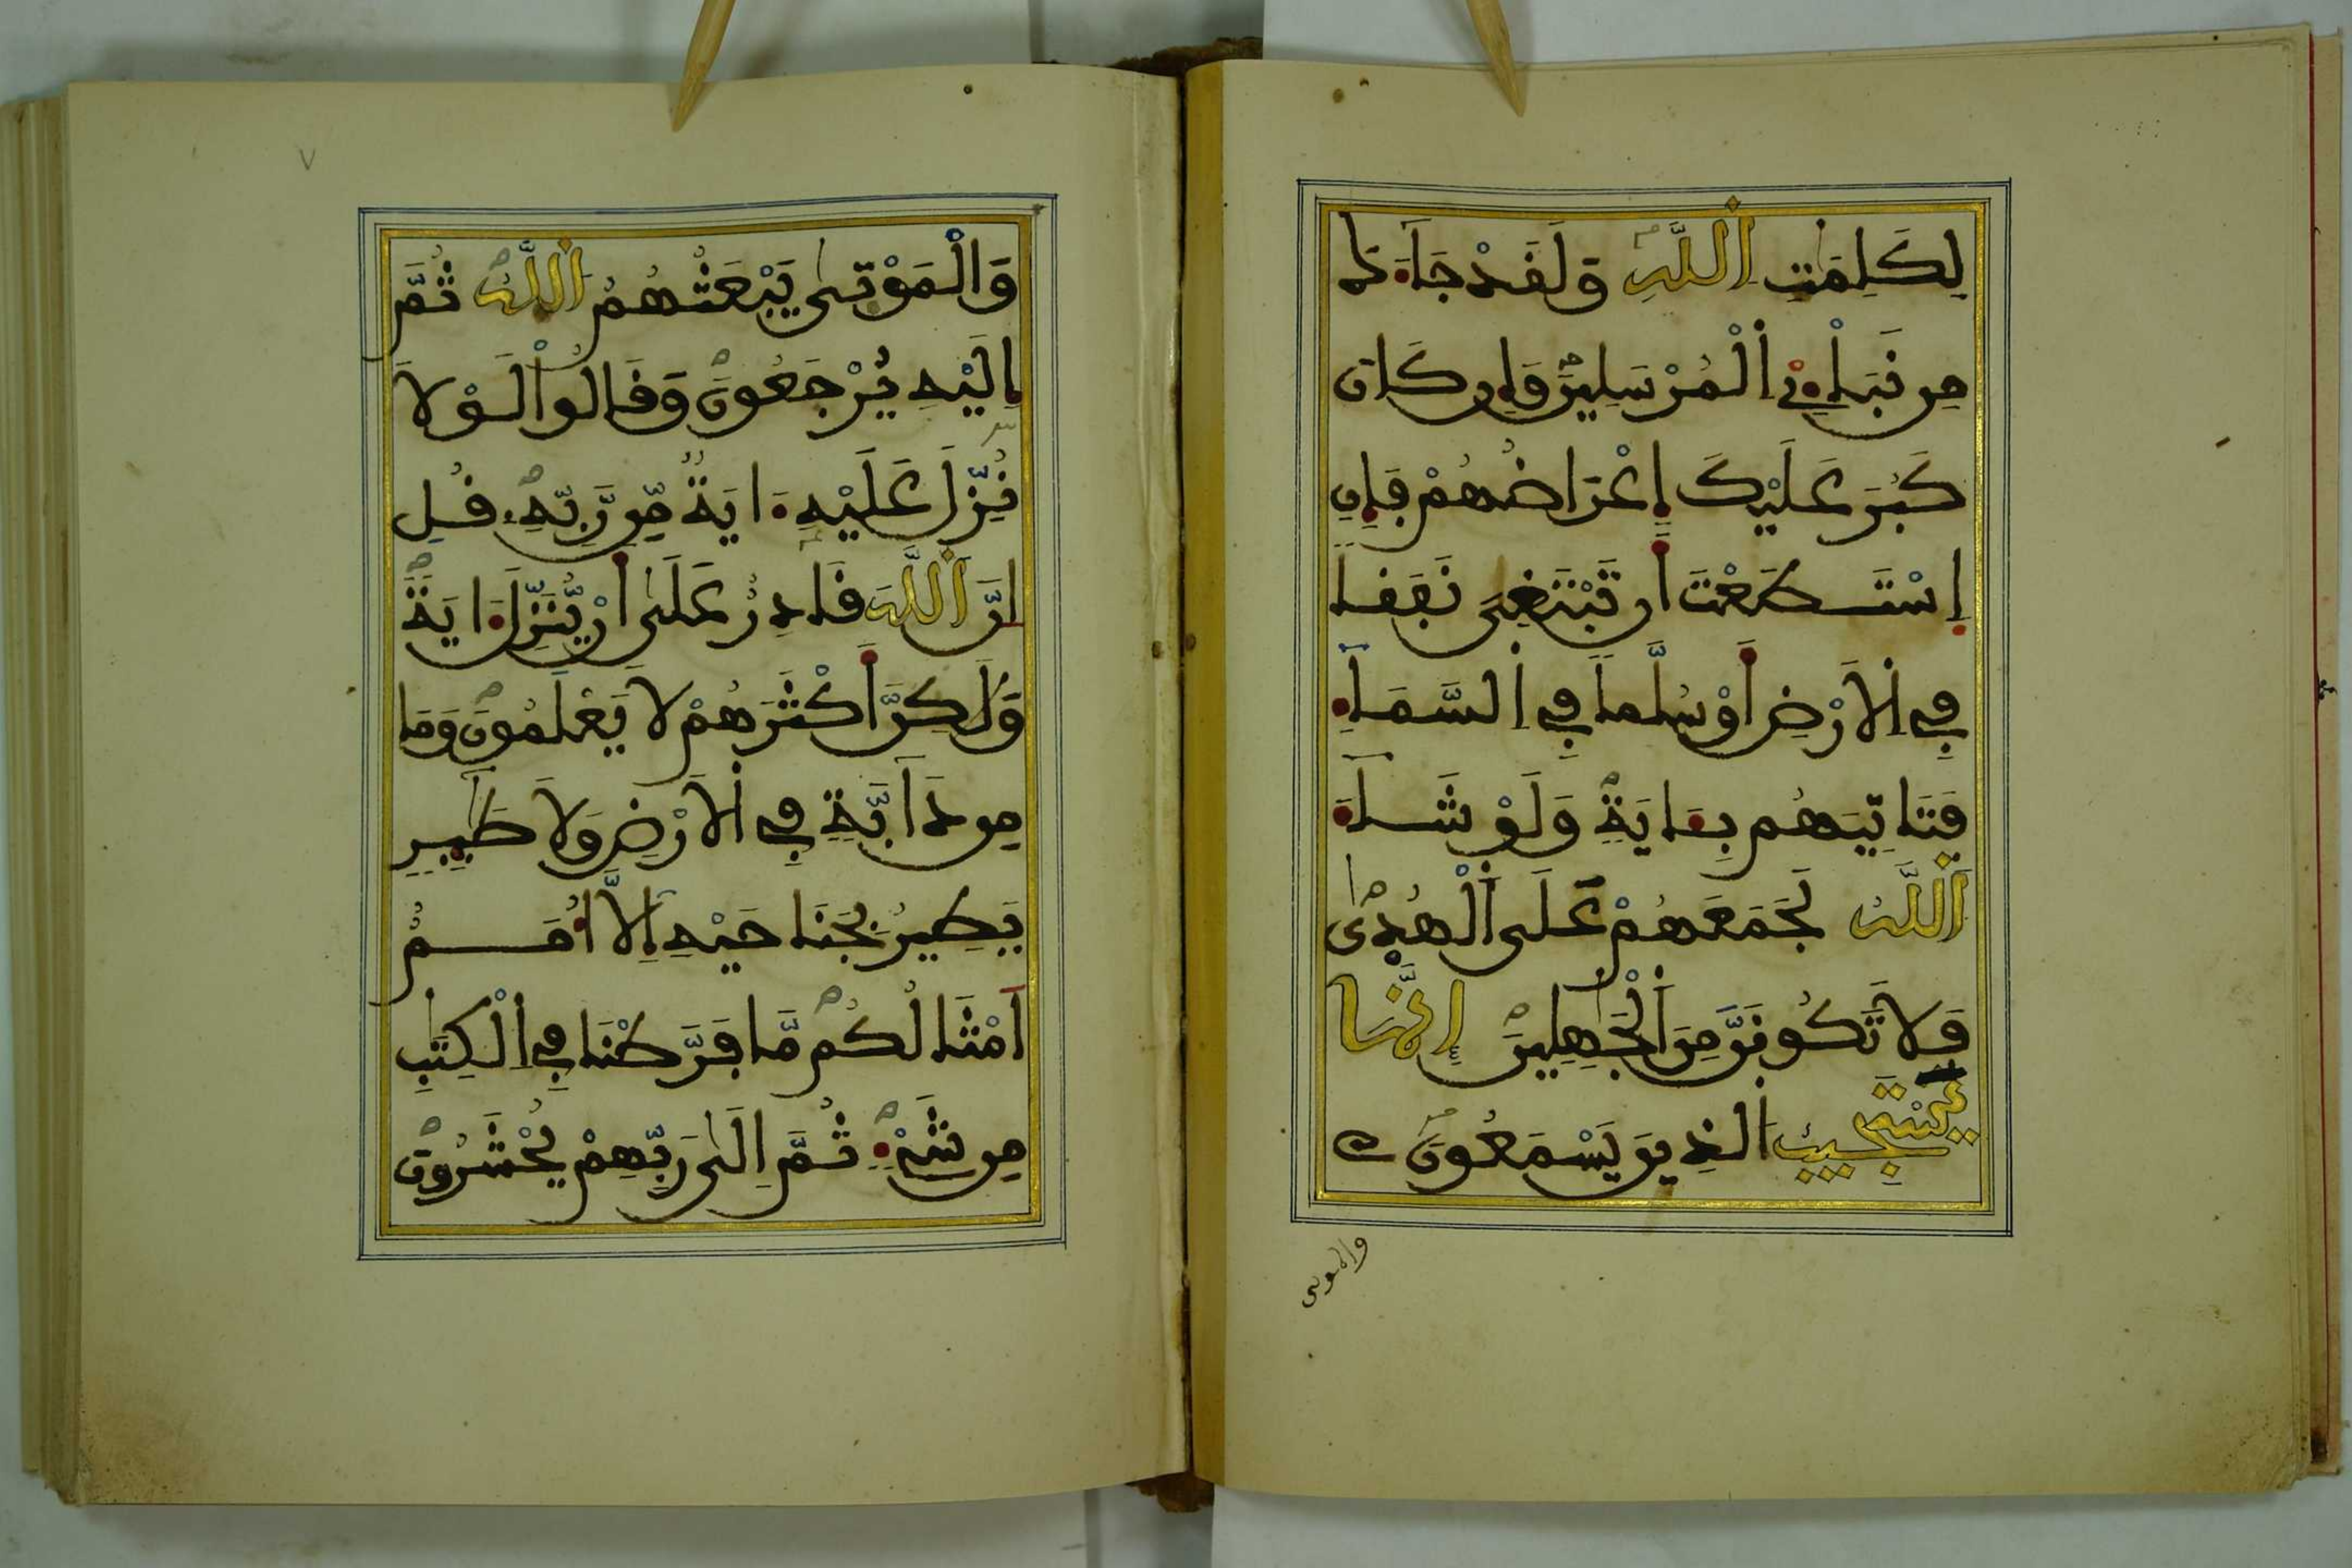 لِكَلِمَٰتِ اِ۬للَّهِ وَلَقَدْ جَآءَكَ
مِن نَّبَإِےْ اِ۬لْمُرْسَلِينَ وَإِن كَانَ
كَبُرَ عَلَيْكَ إِعْرَاضُهُمْ فَإِنِ
اِ۪سْتَطَعْتَ أَن تَبْتَغِيَ نَفَقاً
فِے اِ۬لَارْضِ أَوْ سُلَّماً فِے اِ۬لسَّمَآءِ
فَتَاتِيَهُم بِـَٔايَةٍ وَلَوْ شَآءَ
اَ۬للَّهُ لَجَمَعَهُمْ عَلَى اَ۬لْهُد۪ىٰ
فَلَا تَكُونَنَّ مِنَ اَ۬لْجَٰهِلِينَ إِنَّمَا
يَسْتَجِيبُ اُ۬لذِينَ يَسْمَعُونَ
والموتى
٧
وَالْمَوْتَىٰ يَبْعَثُهُمُ اُ۬للَّهُ ثُمَّ
إِلَيْهِ يُرْجَعُونَ وَقَالُواْ لَوْلَا
نُزِّلَ عَلَيْهِ ءَايَةٌ مِّن رَّبِّهِۦ قُلِ
اِنَّ اَ۬للَّهَ قَادِرٌ عَلَىٰ أَنْ يُّنَزِّلَ ءَايَةً
وَلَٰكِنَّ أَكْثَرَهُمْ لَا يَعْلَمُونَ وَمَا
مِن دَآبَّةٍ فِے اِ۬لَارْضِ وَلَا طَٰٓئِرٍ
يَطِيرُ بِجَنَاحَيْهِ إِلَّآ أُمَمٌ
اَمْثَالُكُم مَّا فَرَّطْنَا فِے اِ۬لْكِتَٰبِ
مِن شَےْءٍ ثُمَّ إِلَىٰ رَبِّهِمْ يُحْشَرُونَ